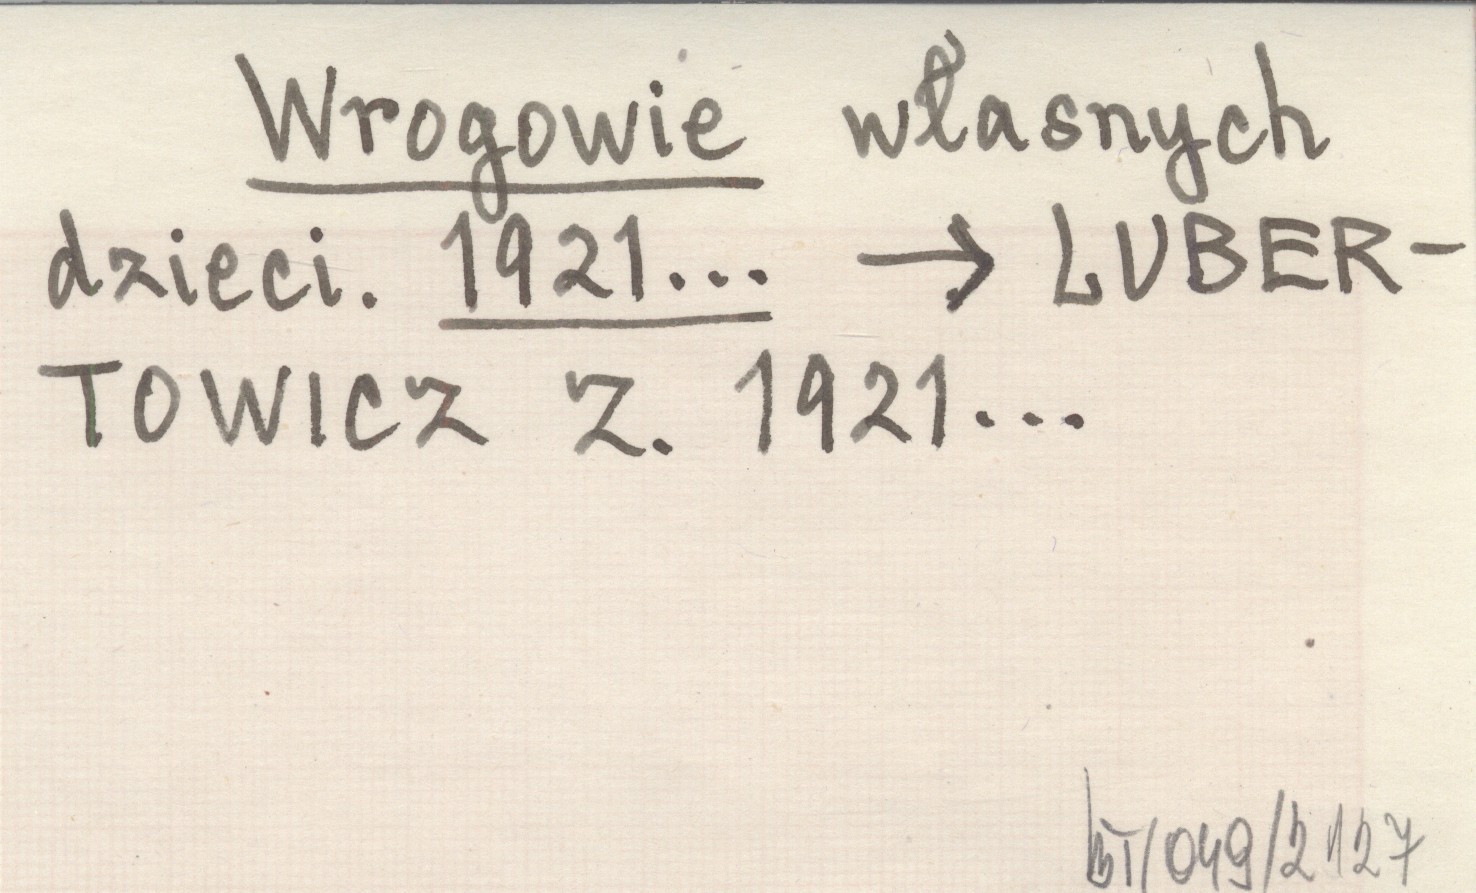 Wrogowie własnych
dzieci. 1921... → LUBER-
TOWICZ Z. 1921...
/049/2127